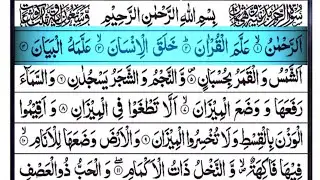 بِسْمِ اللهِ الرَّحْمٰنِ الرَّحِيْمِ
اَلرَّحْمٰنُ ۙ﴿۱﴾ عَلَّمَ الْقُرْاٰنَ ؕ﴿۲﴾ خَلَقَ الْاِنْسَانَ ۙ﴿۳﴾ عَلَّمَهُ الْبَيَانَ ﴿۴﴾
اَلشَّمْسُ وَ الْقَمَرُ بِحُسْبَانٍ ﴿۵﴾ وَّ النَّجْمُ وَ الشَّجَرُ يَسْجُدٰنِ ﴿۶﴾ وَ السَّمَآءَ
رَفَعَهَا وَ وَضَعَ الْمِيْزَانَ ۙ﴿۷﴾ اَلَّا تَطْغَوْا فِي الْمِيْزَانِ ﴿۸﴾ وَ اَقِيْمُوا
الْوَزْنَ بِالْقِسْطِ وَ لَا تُخْسِرُوا الْمِيْزَانَ ﴿۹﴾ وَ الْاَرْضَ وَضَعَهَا لِلْاَنَامِ ﴿۱۰﴾
فِيْهَا فَاكِهَةٌ ۪ۙ وَّ النَّخْلُ ذَاتُ الْاَكْمَامِ ﴿۱۱﴾ وَ الْحَبُّ ذُو الْعَصْفِ